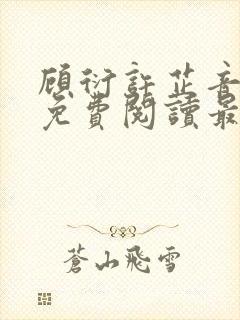 顾衍許芷音
免費閱讀最
蒼山飛雪